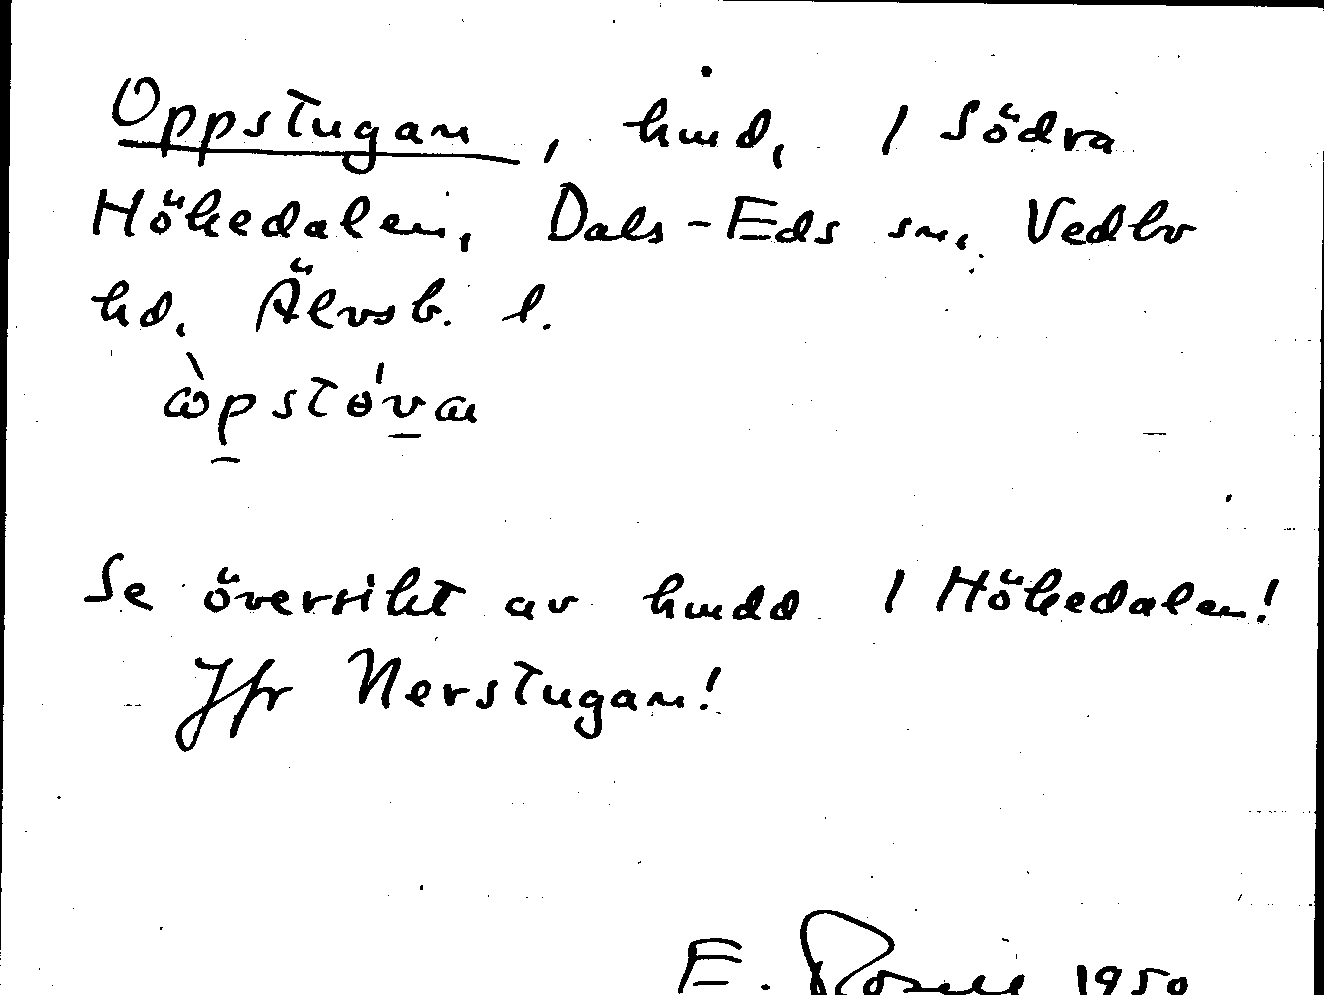 Oppstugan, hmd, i Södra
Hökedalen, Dals-Eds sn, Vedbo
hd, Älvsb. l.
Se översikt av hmdd i Hökedalen!
Jfr Nerstugan!
E. 1950